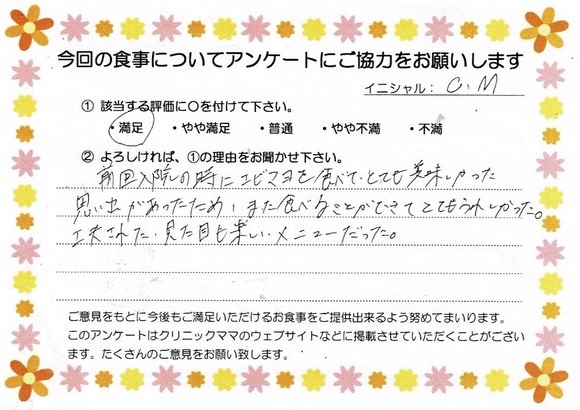 今回の食事についてアンケートにご協力をお願いします
イニシャル： C.M
① 該当する評価に○を付けて下さい。
・満足 ・やや満足 ・普通 ・やや不満 ・不満
② よろしければ、①の理由をお聞かせ下さい。
前回入院の時にエビマヨを食べて、とても美味しかった
思い出があったため、また食べることができてとてもうれしかった。
工夫された、見た目も楽しいメニューだった。
ご意見をもとに今後もご満足いただけるお食事をご提供出来るよう努めてまいります。
このアンケートはクリニックママのウェブサイトなどに掲載させていただくことがござい
ます。たくさんのご意見をお願い致します。